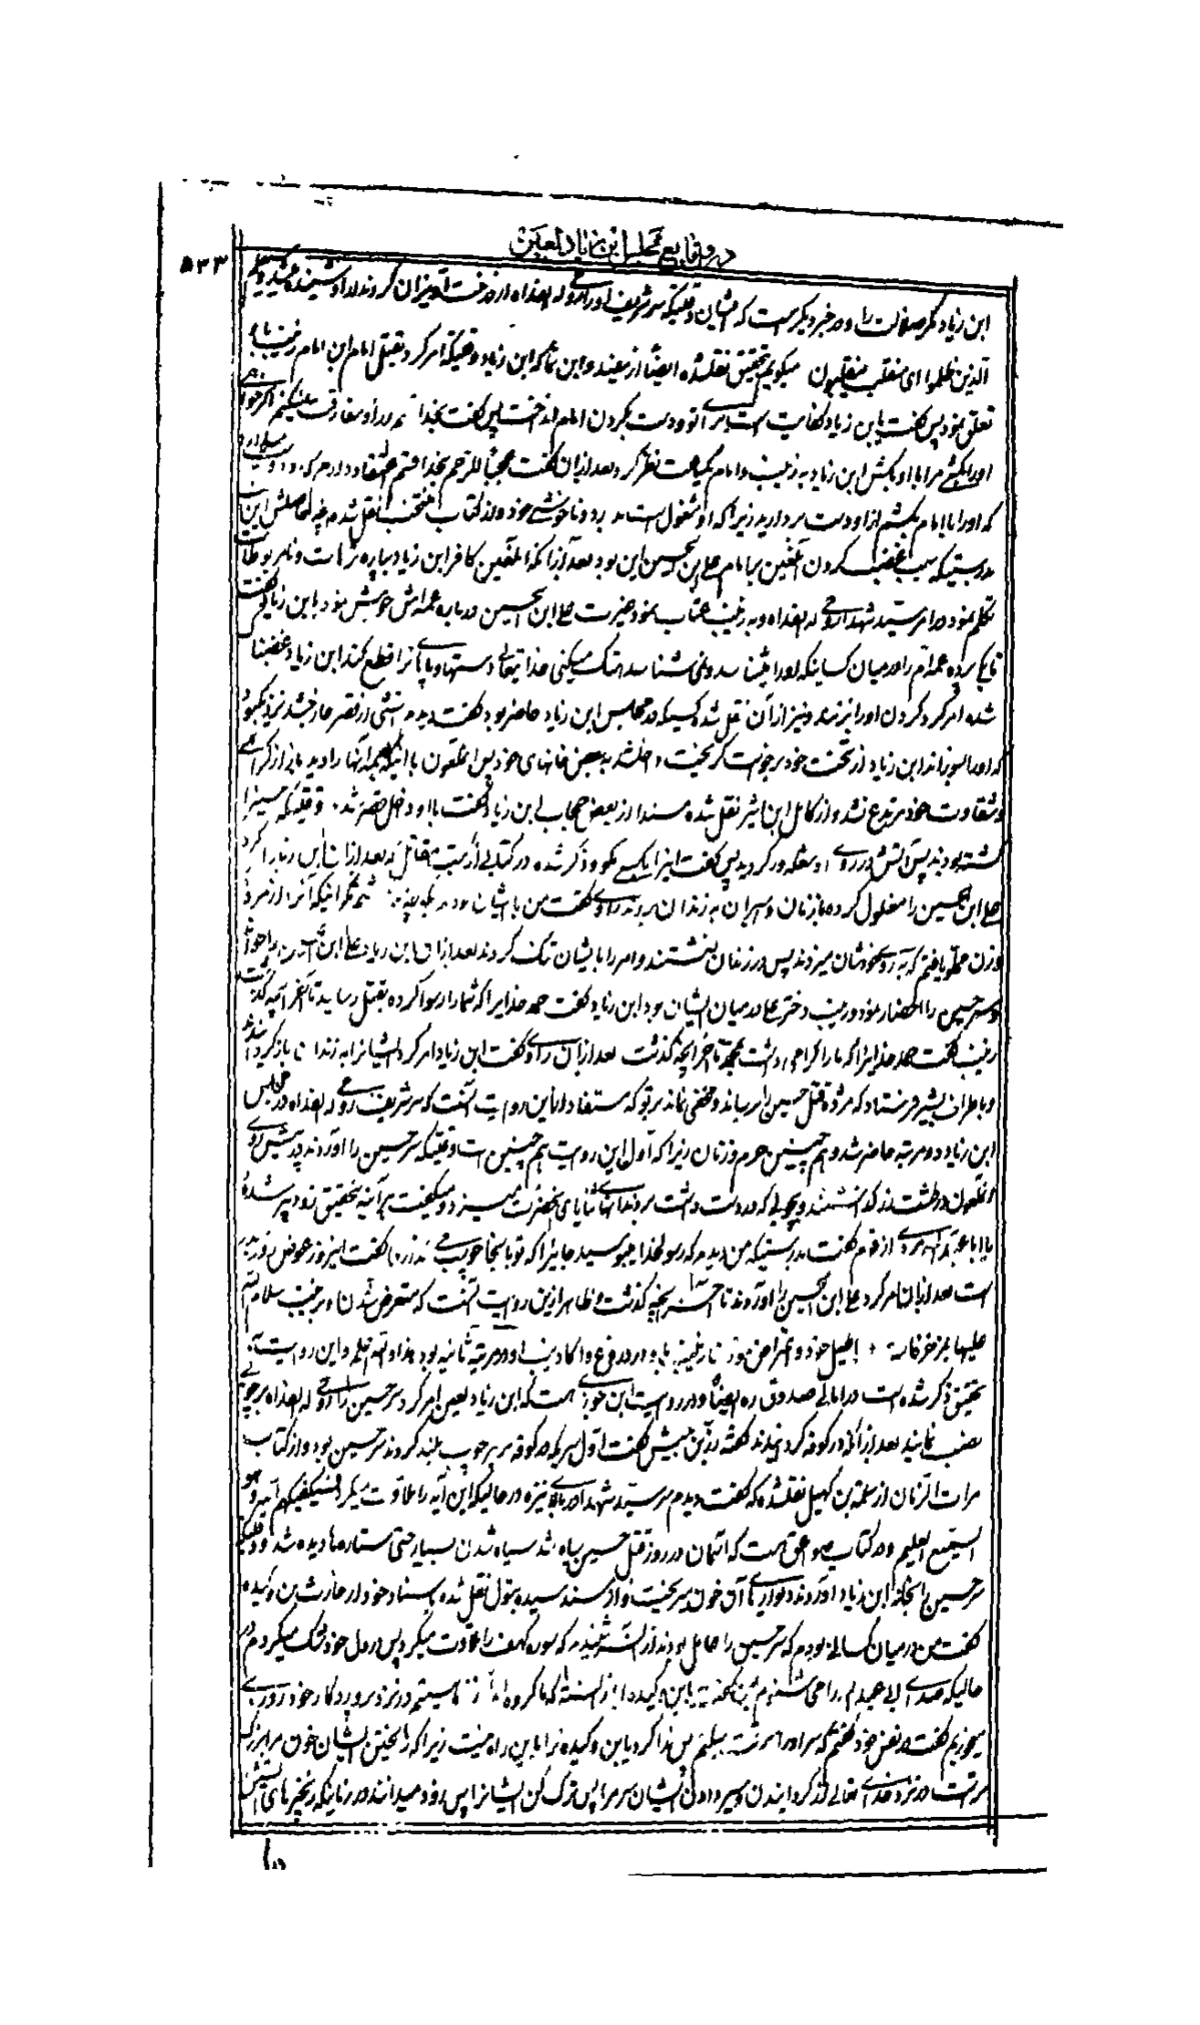 در وقایع مجلس ابن زیاد لعین
۵۳۳
ابن زیاد مگر ضلالت را و در خبر دیگر است که ایشان وقتیکه سر شریف او روحی له الفداه از درخت آویزان کردند از او شنیده شد و سیعلم
الذین ظلموا ای منقلب ینقلبون میگویم تحقیق نقلشده ایضا از مفید و ابن نما که ابن زیاد وقتیکه امر کرد بقتل امام ابن امام زینب با او
تعلق نمود پس گفت یا بن زیاد کفایت است برای تو و دست بگردن امام انداخت پس گفت بخدا از او مفارقت نمیکنم اگر خواهی
او را بکشی مرا با او بکش ابن زیاد به زینب و امام یکساعت نظر کرد بعد از آن گفت عجبا للرحم بخدا قسم اعتقاد دارم که او دوست میدارد
که او را با امام بکشم از او دست بردارید زیرا که او مشغول است بدرد و ناخوشی خود و از کتاب منتخب نقل شده چیزیکه حاصلش این است
بدرستیکه سبب غضب کردن آنلعین بامام علی بن الحسین این بود بعد از آنکه آنلعین کافر ابن زیاد بپاره ترهات و نامربوطات
تکلم نمود در امر سید شهدا روحی له الفداه و به زینب عتاب نمود حضرت علی ابن الحسین درباره عمه اش خروش نمود بابن زیاد گفت
تا بکی پرده عمه ام را در میان کسانیکه او را میشناسند و نمیشناسند هتک میکنی خدایتعالی دستها و پاهای ترا قطع کند ابن زیاد غضبناک
شده امر کرد گردن او را بزنند و نیز از آن نقل شد کسیکه در مجلس ابن زیاد حاضر بود گفت دیدم آتشی از قصر خارج شد نزدیک بود
که او را بسوزاند ابن زیاد از تخت خود برخواست گریخت و داخلشد به بعض خانهای خود پس آنملعون با اینکه همه اینها را دید باز از گمراهی
و شقاوت خود مرتدع نشد و از کامل ابن اثیر نقل شده مسندا از بعض حجاب ابن زیاد گفت با او داخل قصر شدم وقتیکه حسین را
کشته بودند پس آتش در روی او شعله ور گردید پس گفت اینرا بکسی مگو و ذکر شده در کتابی از کتب مقاتل که بعد از آن ابن زیاد امر کرد
علی ابن الحسین را مغلول کرده با زنان و اسیران به زندان بردند راوی گفت من با ایشان بودم
و زن مملو یافتم که به روی خودشان میزدند پس در زندان بنشستند و امر را بایشان تنگ کردند بعد از آن ابن زیاد علی ابن الحسین را خواند
و سر حسین را احضار نمود و زینب دختر علی در میان ایشان بود ابن زیاد گفت حمد خدایرا که شما را رسوا کرده بقتل رسانید تا آخر آنچه گذشت
زینب گفت حمد خدایرا که ما را گرامی داشت بمحمد تا آخر آنچه گذشت بعد از آن راوی گفت ابن زیاد امر کرد ایشانرا به زندان باز گردانیدند
و باطراف بشیر فرستاد که مژده قتل حسین را برساند و مخفی نماند بر تو که مستفاد از این روایت آنست که سر شریف روحی له الفداه در مجلس
ابن زیاد دو مرتبه حاضر شد و هم چنین حرم و زنان زیرا که اول این روایت هم چنین است وقتیکه سر حسین را آوردند در پیش روی
آنملعون در طشت زر گذاشتند و چوبی که در دست داشت بر دندانهای ثنایای آنحضرت میزد و میگفت هر آینه بتحقیق زود پیر شده
یا ابا عبد الله مردی از قوم گفت بدرستیکه من دیدم که رسولخدا میبوسید جائیرا که تو بآنجا چوب میگذاری گفت امروز عوض روز بدر
است بعد از آن امر کرد علی ابن الحسین را آوردند تا آخر آنچه گذشت و ظاهر از این روایت آنست که متعرض شدن او بر زینب سلام الله
علیها بمزخرفات و اباطیل خود و تعرض نمودن زینب باو در دروغ و اکاذیب او در مرتبه ثانیه بود هذا و الله العالم و این روایت
تحقیق ذکر شده است در امالی صدوق ره ایضا و در روایت ابن جوزی هست که ابن زیاد لعین امر کرد سر حسین را روحی له الفداه بر چوبی
نصب نمایند بعد از آنکه در کوفه گردانیدند گفته زر بن حبیش گفت اول سریکه در کوفه بر سر چوب بلند کردند سر حسین بود و از کتاب
مرات الزمان از سلمة بن کهیل نقلشده که گفت دیدم سر سید شهدا در بالای نیزه در حالیکه این آیه را تلاوت میکرد فسیکفیکهم الله و هو
السمیع العلیم و در کتاب صواعق هست که آسمان در روز قتل حسین سیاه شد سیاه شدن بسیار حتی ستاره ها دیده شد و وقتیکه
سر حسین را بخانه ابن زیاد آوردند دیوارهای آن خون میریخت و از مسند سیده بتول نقل شده باسناد خود از حارث بن وکیده
گفت من در میان کسانی بودم که سر حسین را حامل بودند از او شنیدم که سوره کهف را تلاوت میکرد پس در دل خود شک میکردم در
حالیکه صدای ابی عبد الله را می شنیدم پس گفت یا بن وکیده آیا ندانسته که ما گروه امامان زنده هستیم در نزد پروردگار خود روزی
میخوریم گفت در نفس خود گفتم که سر او را سرقت نمایم پس ندا کرد یا بن وکیده ترا باین راه نیست زیرا که ریختن ایشان خون مرا بزرگ
تر است در نزد خدای تعالی از گردانیدن و سیر دادن ایشان سر مرا پس ترک کن ایشانرا پس زود میدانند در زمانیکه زنجیرهای آتشین
در